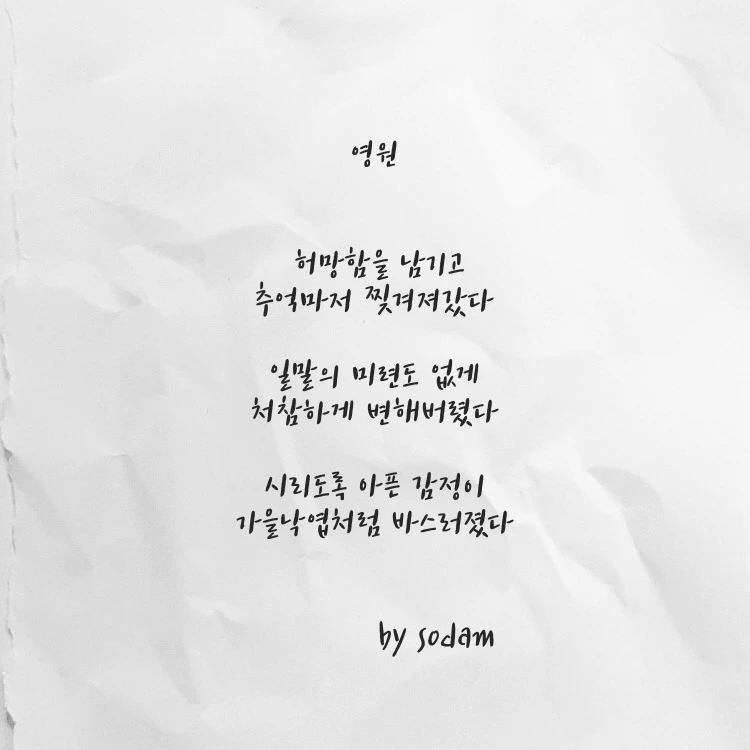 영원
허망함을 남기고
추억마저 찢겨져갔다
일말의 미련도 없게
처참하게 변해버렸다
시리도록 아픈 감정이
가을낙엽처럼 바스러졌다
by sodam